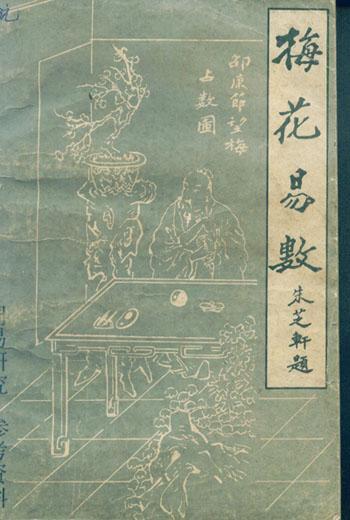 梅花易數
朱芝軒題
邵康節望梅
占數圖
周易研究 参考資料